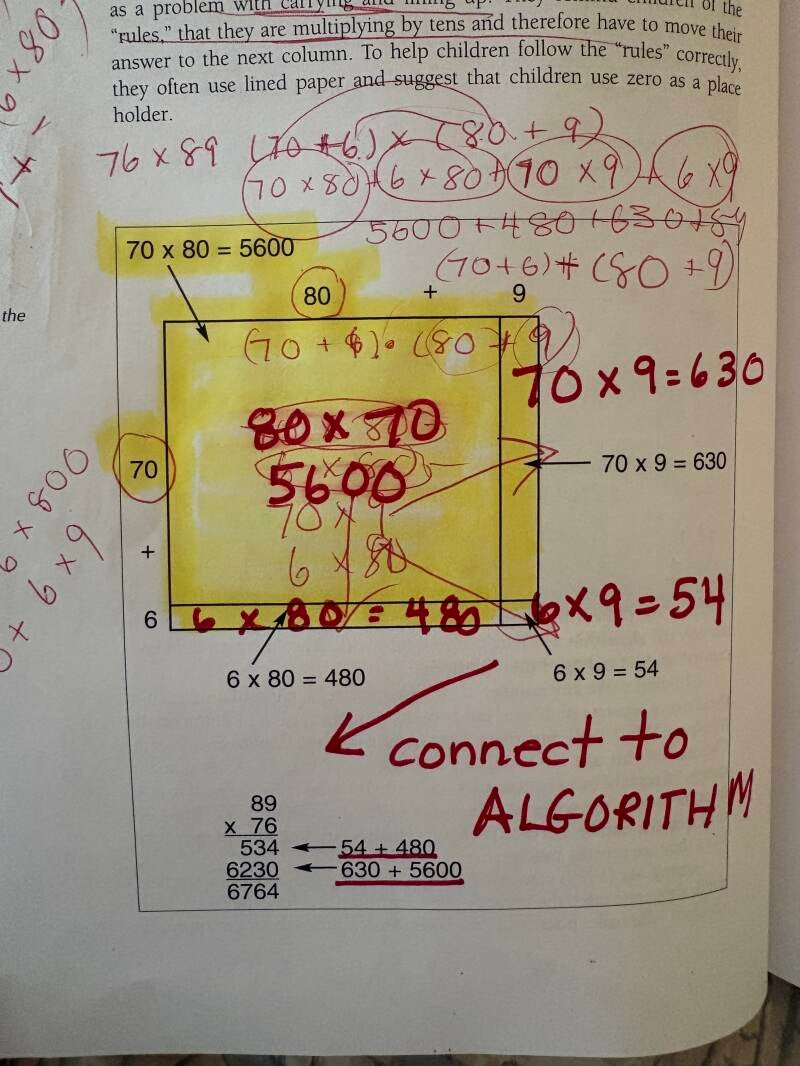 as a problem with carrying and lining up. They remind children of the
"rules," that they are multiplying by tens and therefore have to move their
answer to the next column. To help children follow the "rules" correctly,
they often use lined paper and suggest that children use zero as a place
holder.
76 x 89 (70 + 6) x (80 + 9)
70 x 80 + 6 x 80 + 70 x 9 + 6 x 9
5600 + 480 + 630 + 54
(70+6) + (80 + 9)
70 x 80 = 5600
the
80 + 9
(70 + 6) • (80 + 9)
70 x 9 = 630
80 x 70
70
70 x 9 = 630
5600
70 x 9
6 x 80
+
6 x 800
6 x 9
6
6 x 80 = 480
6 x 9 = 54
6 x 80 = 480
6 x 9 = 54
connect to
ALGORITHM
89
x 76
534 54 + 480
6230 630 + 5600
6764